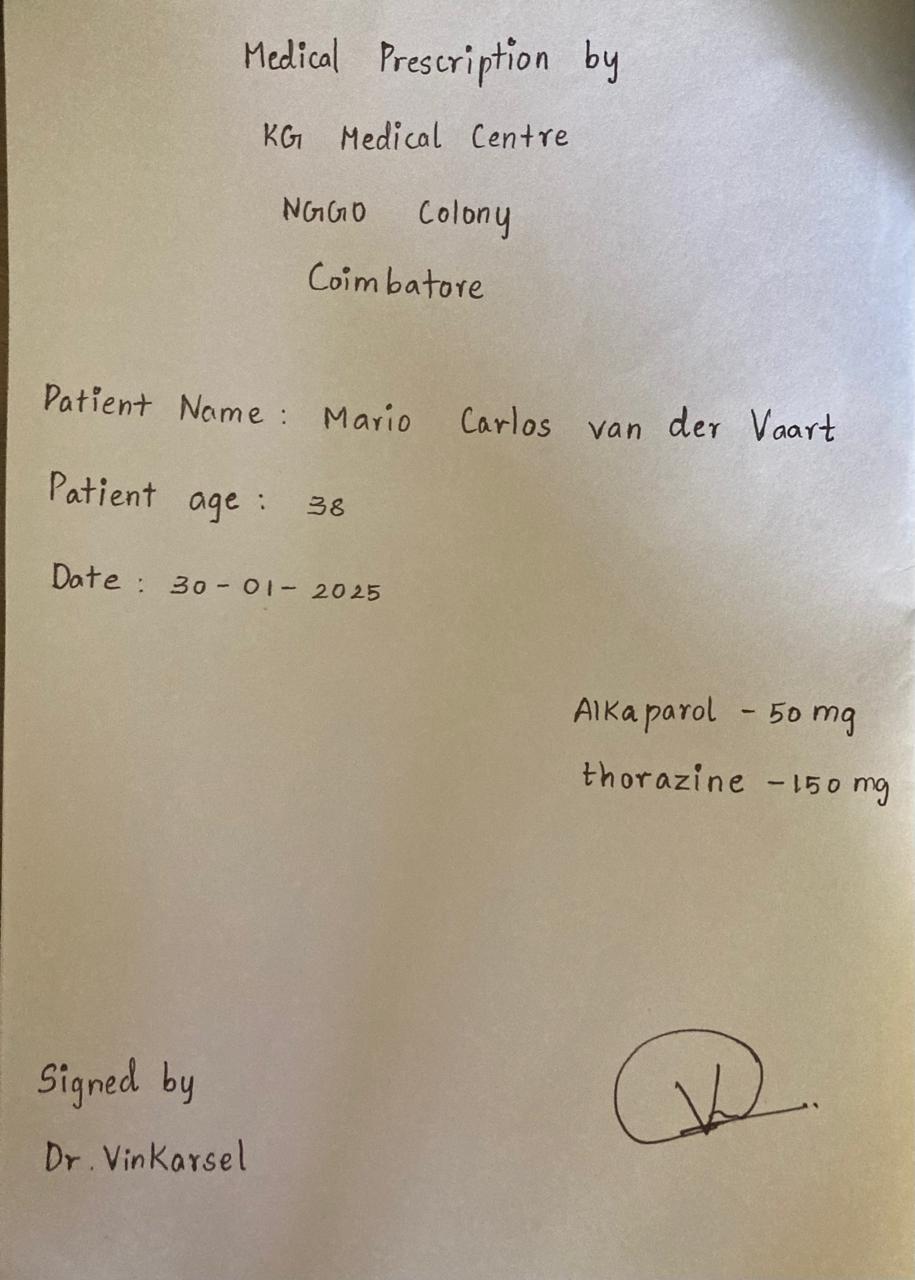 Medical Prescription by
KG Medical Centre
NGGO Colony
Coimbatore
Patient Name : Mario Carlos van der Vaart
Patient age : 38
Date : 30-01-2025
Alkaparol - 50 mg
thorazine - 150 mg
Signed by
Dr. Vinkarsel